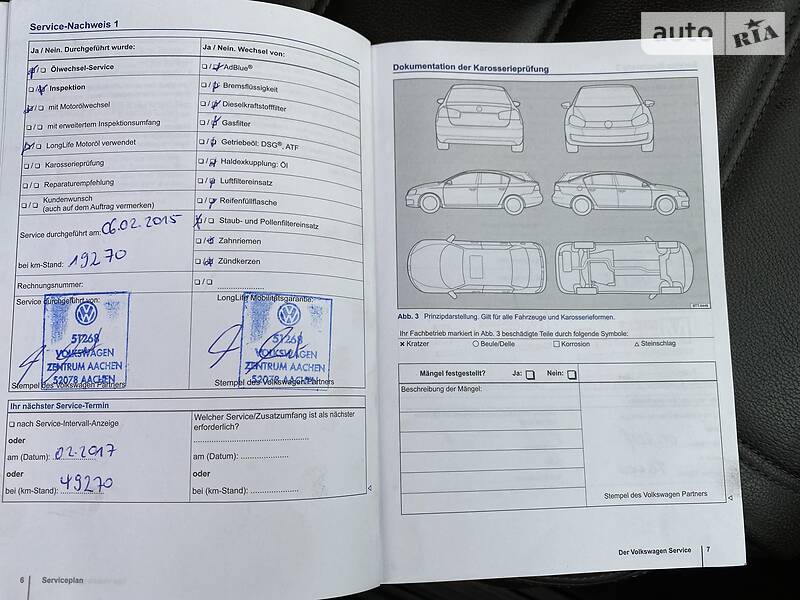 Service-Nachweis 1
Ja / Nein. Durchgeführt wurde:
Ölwechsel-Service
Inspektion
mit Motorölwechsel
mit erweitertem Inspektionsumfang
LongLife Motoröl verwendet
Karosserieprüfung
Reparaturempfehlung
Kundenwunsch
(auch auf dem Auftrag vermerken)
Service durchgeführt am: 06.02.2015
bei km-Stand: 19270
Rechnungsnummer:
Service durchgeführt von:
51268
VOLKSWAGEN
ZENTRUM AACHEN
52078 AACHEN
Stempel des Volkswagen Partners
Ja / Nein. Wechsel von:
AdBlue®
Bremsflüssigkeit
Dieselkraftstofffilter
Gasfilter
Getriebeöl: DSG®, ATF
Haldexkupplung: Öl
Luftfiltereinsatz
Reifenfüllflasche
Staub- und Pollenfiltereinsatz
Zahnriemen
Zündkerzen
LongLife Mobilitätsgarantie:
51268
VOLKSWAGEN
ZENTRUM AACHEN
52078 AACHEN
Stempel des Volkswagen Partners
Ihr nächster Service-Termin
nach Service-Intervall-Anzeige
oder
am (Datum): 02.2017
oder
bei (km-Stand): 49270
Welcher Service/Zusatzumfang ist als nächster
erforderlich?
am (Datum):
oder
bei (km-Stand):
6 Serviceplan
auto RIA
Dokumentation der Karosserieprüfung
Abb. 3 Prinzipdarstellung. Gilt für alle Fahrzeuge und Karosserieformen.
Ihr Fachbetrieb markiert in Abb. 3 beschädigte Teile durch folgende Symbole:
× Kratzer ○ Beule/Delle □ Korrosion △ Steinschlag
Mängel festgestellt? Ja: Nein:
Beschreibung der Mängel:
Stempel des Volkswagen Partners
Der Volkswagen Service 7